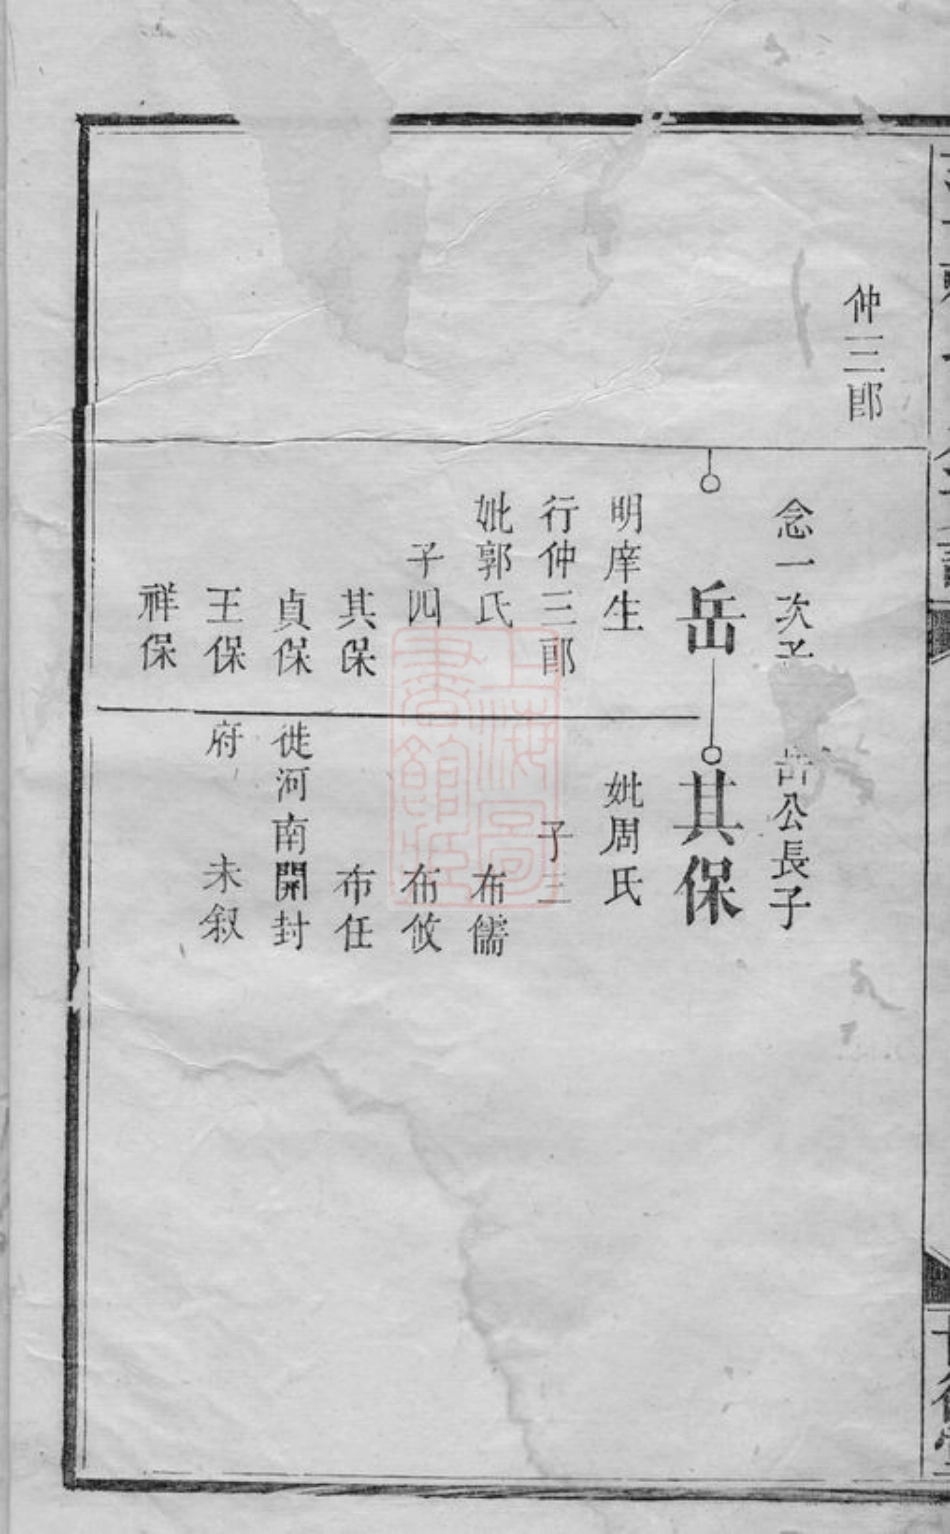 仲三郎
念一次子
岳
明庠生
行仲三郎
妣郭氏
子四
其保
貞保
王保
祥保
岳公長子
其保
妣周氏
子三
布儒
布攸
布任
徙河南開封
府 未叙
上海圖
書館藏